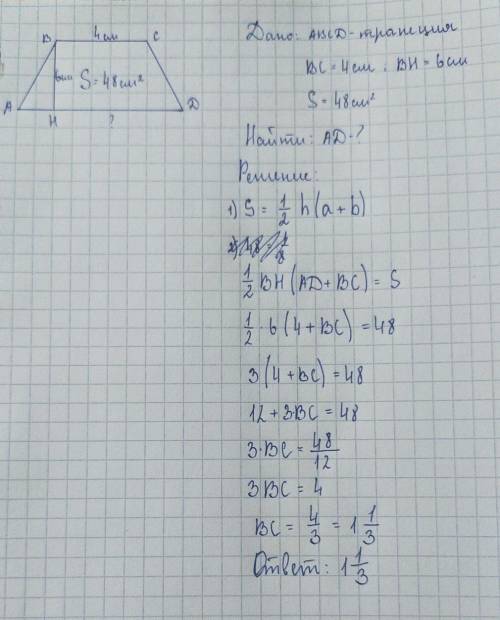 B 4см C
6см S=48см²
A H ? D
Дано: ABCD-трапеция
BC=4см; BH=6см
S=48см²
Найти: AD-?
Решение:
1) S = 1/2 h(a+b)
1/2 BH(AD+BC) = S
1/2 · 6(4+BC) = 48
3(4+BC) = 48
12+3·BC = 48
3·BC = 48/12
3BC = 4
BC = 4/3 = 1 1/3
Ответ: 1 1/3